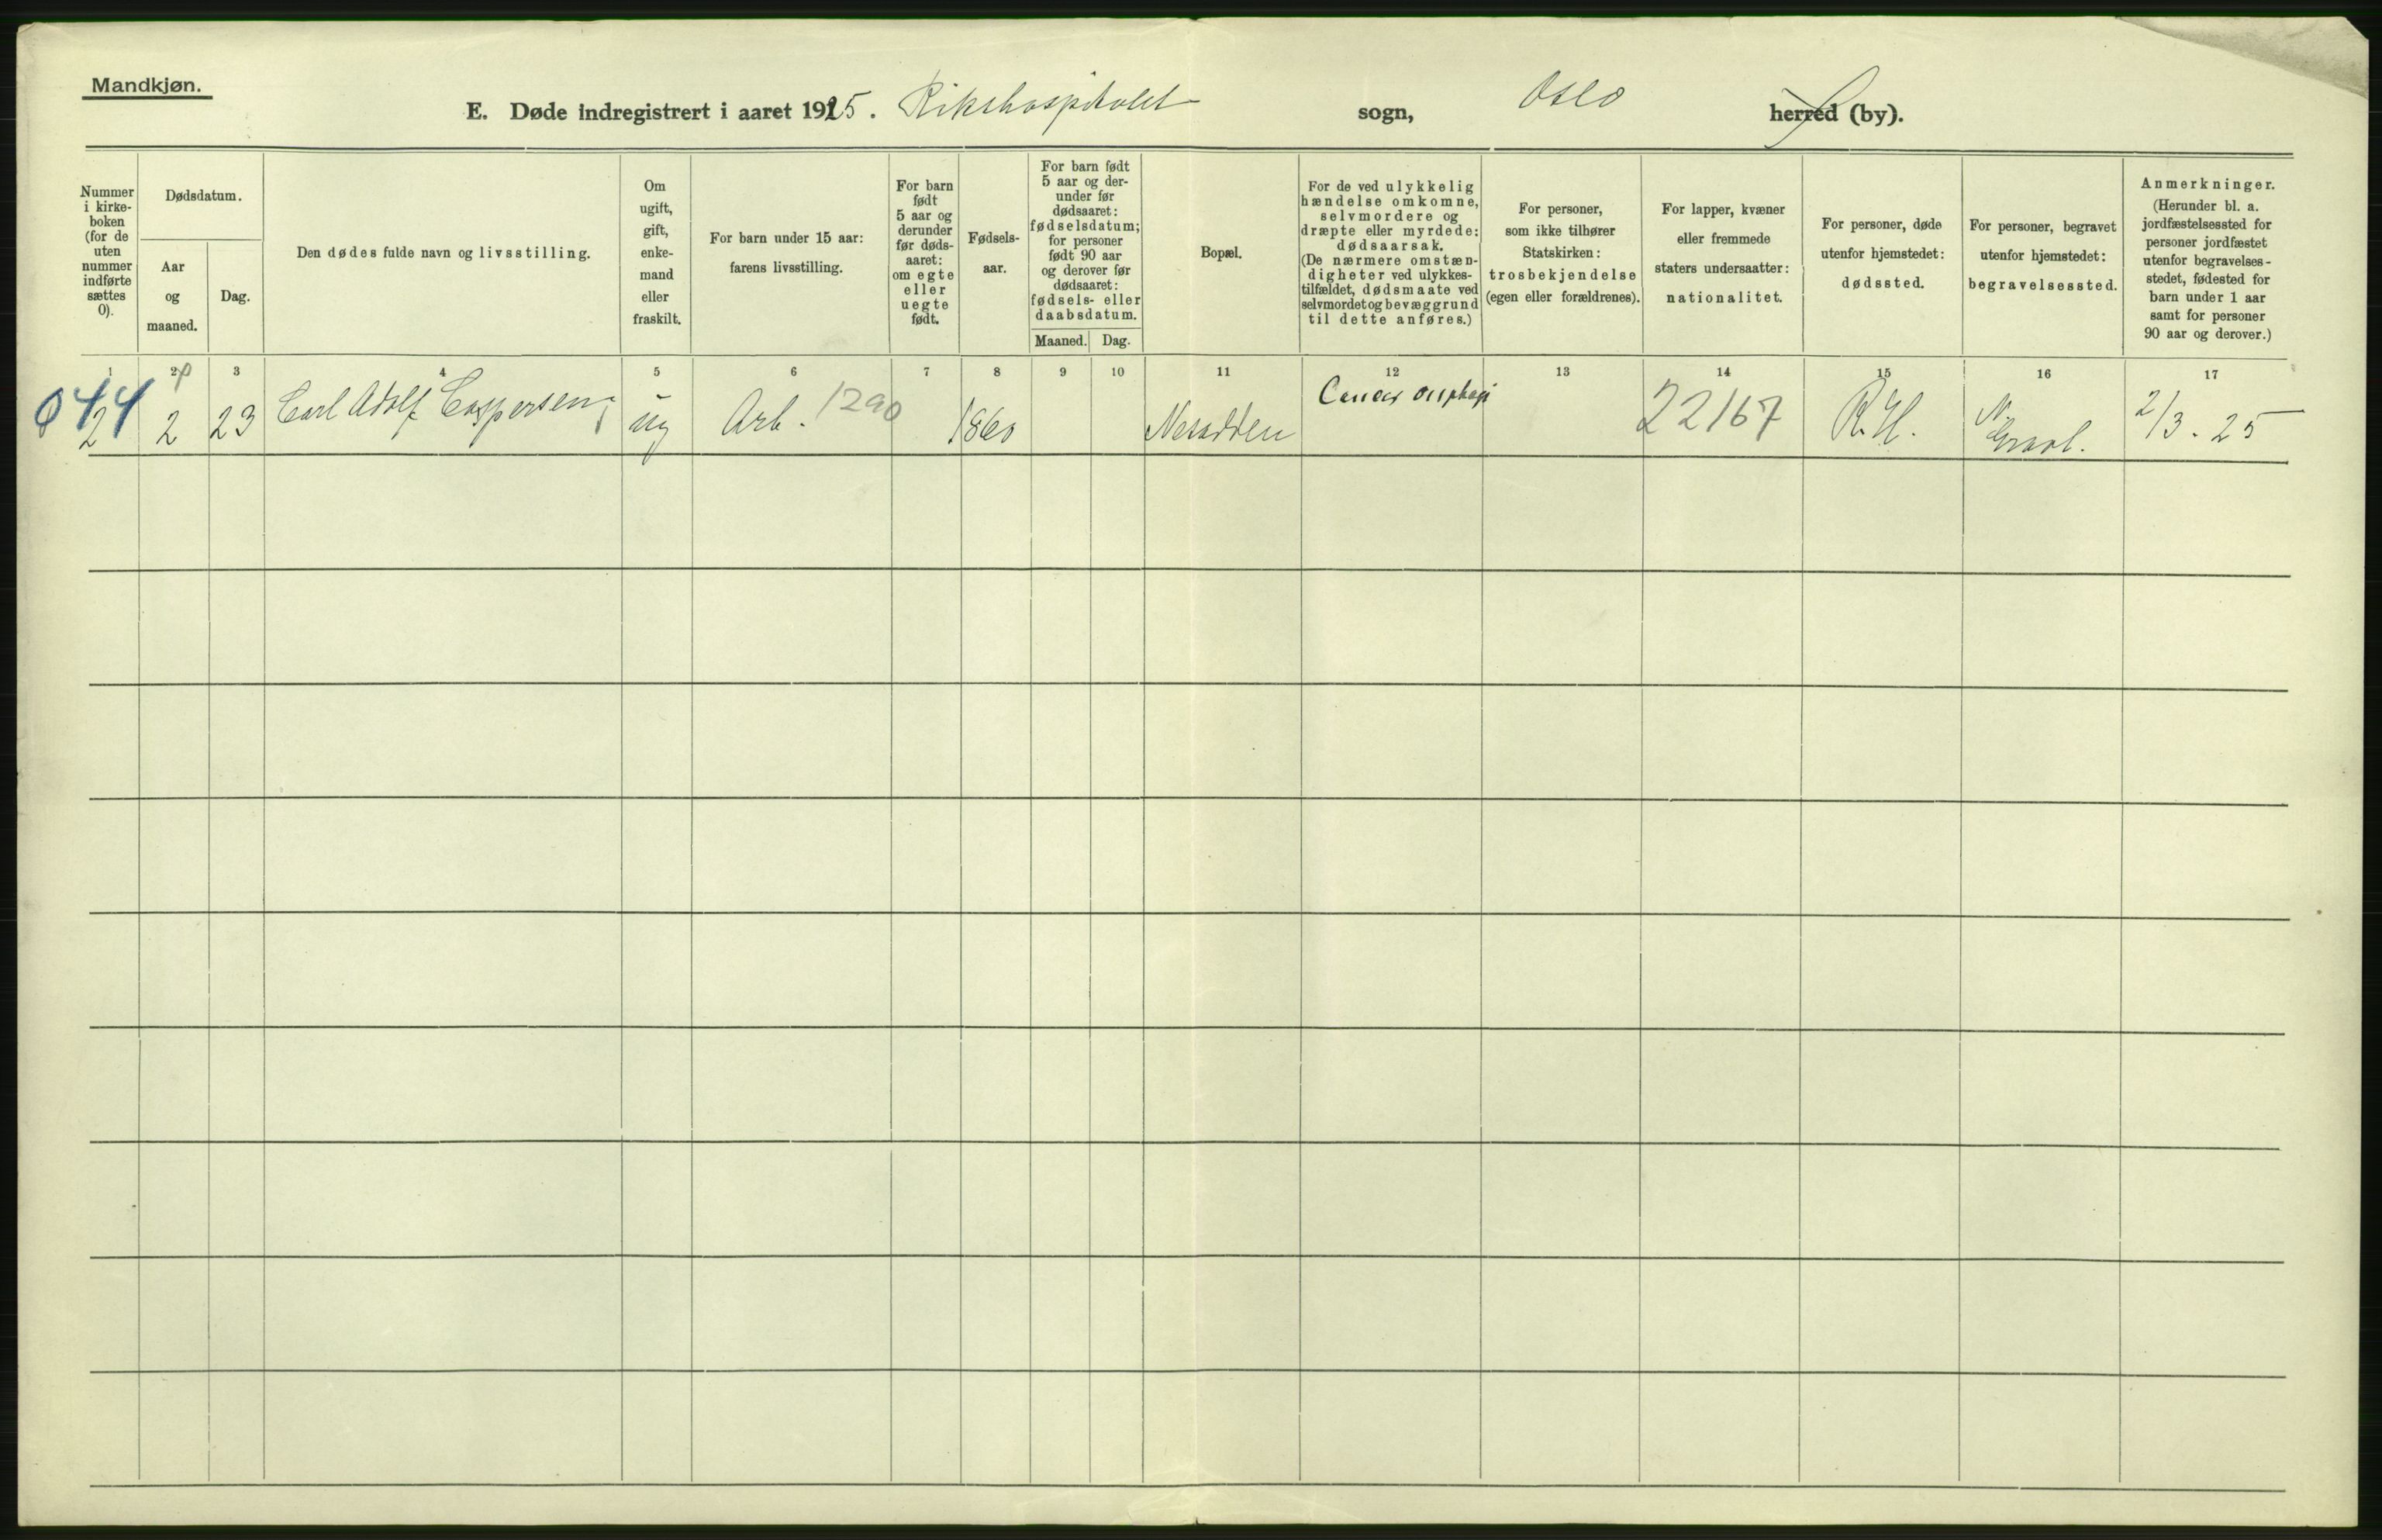 Mandkjøn.
E. Døde indregistrert i aaret 1925. Rikshospitalet sogn, Oslo herred (by).
Nummer
i kirke-
boken
(for de
uten
nummer
indførte
sættes
0).
Dødsdatum.
Aar
og
maaned.
Dag.
Den dødes fulde navn og livsstilling.
Om
ugift,
gift,
enke-
mand
eller
fraskilt.
For barn under 15 aar:
farens livsstilling.
For barn
født
5 aar og
derunder
før døds-
aaret:
om egte
eller
uegte
født.
Fødsels-
aar.
For barn født
5 aar og der-
under før
dødsaaret:
fødselsdatum;
for personer
født 90 aar
og derover før
dødsaaret:
fødsels- eller
daabsdatum.
Maaned.
Dag.
Bopæl.
For de ved ulykkelig
hændelse omkomne,
selvmordere og
dræpte eller myrdede:
dødsaarsak.
(De nærmere omstæn-
digheter ved ulykkes-
tilfældet, dødsmaate ved
selvmordet og bevæggrund
til dette anføres.)
For personer,
som ikke tilhører
Statskirken:
trosbekjendelse
(egen eller forældrenes).
For lapper, kvæner
eller fremmede
staters undersaatter:
nationalitet.
For personer, døde
utenfor hjemstedet:
dødssted.
For personer, begravet
utenfor hjemstedet:
begravelsessted.
Anmerkninger.
(Herunder bl. a.
jordfæstelsessted for
personer jordfæstet
utenfor begravelses-
stedet, fødested for
barn under 1 aar
samt for personer
90 aar og derover.)
1 2 3 4 5 6 7 8 9 10 11 12 13 14 15 16 17
044
2 2 23 Carl Adolf Caspersen ug Arb. 1290 1860 Nesodden Cancer 22167 R.H. N. Gravl. 2/3. 25